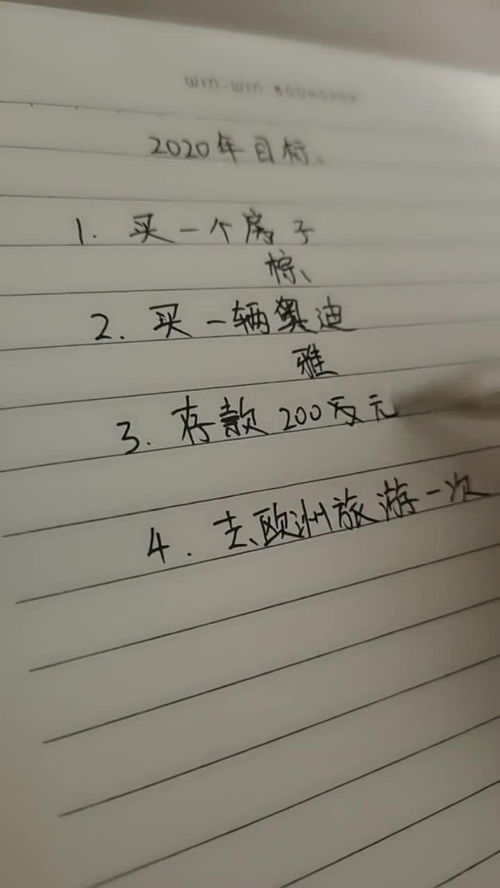 WIN-WIN BOOKSHOP
2020年目标、
1. 买一个房子
棕
2. 买一辆奥迪
雅
3. 存款200万元
4. 去欧洲旅游一次